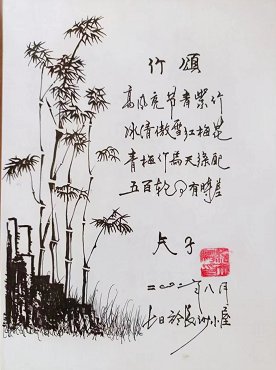 竹頌
高风亮节青紫竹
冰清傲雪红梅是
青梅竹马天缘配
五百轮回有时是
二〇〇二年八月
七日於长沙小屋